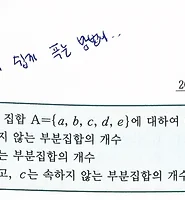 쉽게 푸는 방법은..
20
집합 A={a, b, c, d, e}에 대하여
지 않는 부분집합의 개수
는 부분집합의 개수
고, c는 속하지 않는 부분집합의 개수